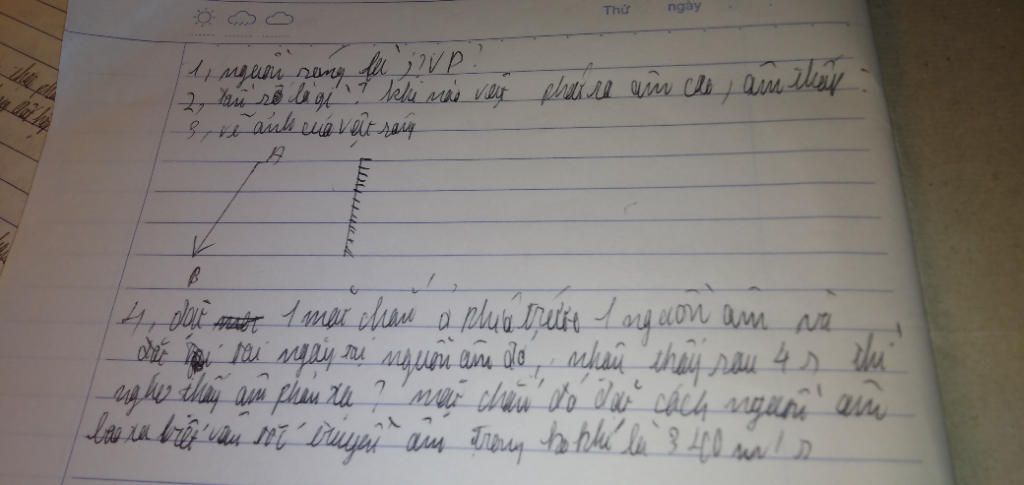 Thứ ngày
1, nguồn sáng là j? VD?
2, tần số là gì? khi nào vật phát ra âm cao, âm thấp?
3, vẽ ảnh của vật sáng
A
B
4, đặt 1 màn chắn ở phía trước 1 nguồn âm và
đặt tai ngay tại nguồn âm đó, nhận thấy sau 4 s thì
nghe thấy âm phản xạ? màn chắn đó đặt cách nguồn âm
bao xa biết vận tốt truyền âm trong ko khí là 340 m/s